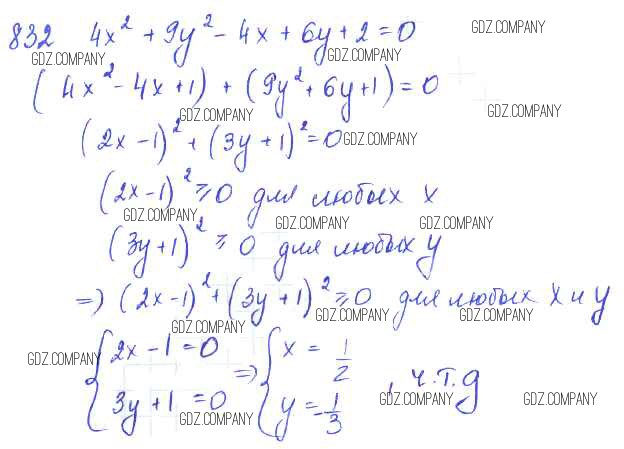 832 4x² + 9y² - 4x + 6y + 2 = 0
GDZ.COMPANY GDZ.COMPANY GDZ.COMPANY
(4x² - 4x + 1) + (9y² + 6y + 1) = 0
GDZ.COMPANY GDZ.COMPANY
(2x - 1)² + (3y + 1)² = 0 GDZ.COMPANY
(2x - 1)² ≥ 0 для любых x
GDZ.COMPANY GDZ.COMPANY GDZ.COMPANY
(3y + 1)² ≥ 0 для любых y
=> (2x - 1)² + (3y + 1)² ≥ 0 для любых x и y
GDZ.COMPANY GDZ.COMPANY GDZ.COMPANY
{ 2x - 1 = 0 => { x = 1/2
GDZ.COMPANY
3y + 1 = 0 y = -1/3 , ч.т.д
GDZ.COMPANY GDZ.COMPANY GDZ.COMPANY